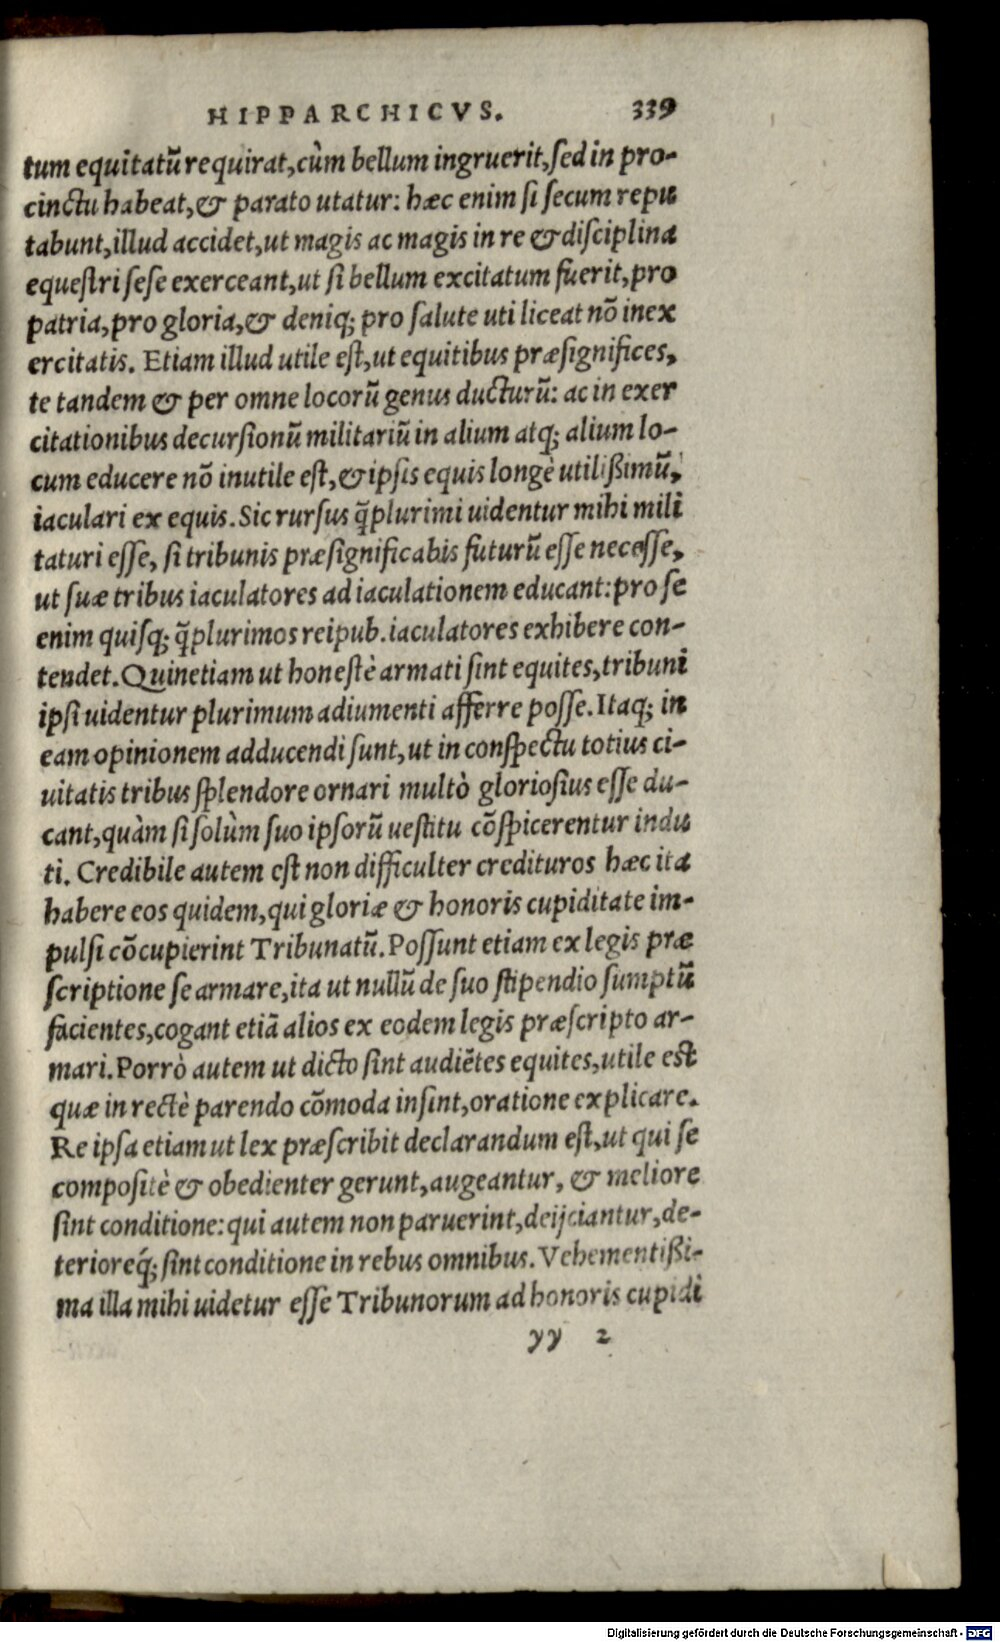 HIPPARCHICVS. 339
tum equitatũ requirat, cùm bellum ingruerit, ſed in pro-
cinctu habeat, & parato utatur: hæc enim ſi ſecum repu
tabunt, illud accidet, ut magis ac magis in re & diſciplina
equeſtri ſeſe exerceant, ut ſi bellum excitatum fuerit, pro
patria, pro gloria, & deniq; pro ſalute uti liceat nõ inex
ercitatis. Etiam illud utile eſt, ut equitibus præſignifices,
te tandem & per omne locorũ genus ducturũ: ac in exer
citationibus decurſionũ militariũ in alium atq; alium lo-
cum educere nõ inutile eſt, & ipſis equis longè utilißimũ,
iaculari ex equis. Sic rurſus q̃plurimi uidentur mihi mili
taturi eſſe, ſi tribunis præſignificabis futurũ eſſe neceſſe,
ut ſuæ tribus iaculatores ad iaculationem educant: pro ſe
enim quiſq; q̃plurimos reipub. iaculatores exhibere con-
tendet. Quinetiam ut honeſtè armati ſint equites, tribuni
ipſi uidentur plurimum adiumenti afferre poſſe. Itaq; in
eam opinionem adducendi ſunt, ut in conſpectu totius ci-
uitatis tribus ſplendore ornari multò glorioſius eſſe du-
cant, quàm ſi ſolùm ſuo ipſorũ ueſtitu cõſpicerentur indu
ti. Credibile autem eſt non difficulter credituros hæc ita
habere eos quidem, qui gloriæ & honoris cupiditate im-
pulſi cõcupierint Tribunatũ. Poſſunt etiam ex legis præ
ſcriptione ſe armare, ita ut nullũ de ſuo ſtipendio ſumptũ
facientes, cogant etiã alios ex eodem legis præſcripto ar-
mari. Porrò autem ut dicto ſint audiẽtes equites, utile eſt
quæ in rectè parendo cõmoda inſint, oratione explicare.
Re ipſa etiam ut lex præſcribit declarandum eſt, ut qui ſe
compoſitè & obedienter gerunt, augeantur, & meliore
ſint conditione: qui autem non paruerint, deijciantur, de-
terioreq́; ſint conditione in rebus omnibus. Vehementißi-
ma illa mihi uidetur eſſe Tribunorum ad honoris cupidi
yy 2
Digitalisierung gefördert durch die Deutsche Forschungsgemeinschaft - DFG